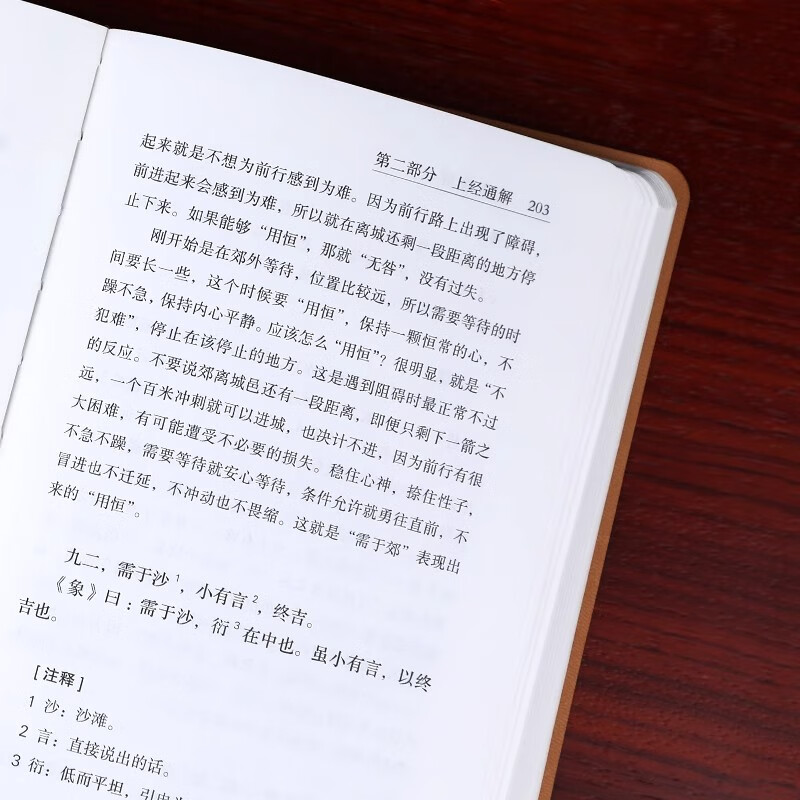 第二部分 上经通解 203
起来就是不想为前行感到为难。因为前行路上出现了障碍，
前进起来会感到为难，所以就在离城还剩一段距离的地方停
止下来。如果能够“用恒”，那就“无咎”，没有过失。
刚开始是在郊外等待，位置比较远，所以需要等待的时
间要长一些，这个时候要“用恒”，保持一颗恒常的心，不
躁不急，保持内心平静。应该怎么“用恒”？很明显，就是“不
犯难”，停止在该停止的地方。这是遇到阻碍时最正常不过
的反应。不要说郊离城邑还有一段距离，即便只剩下一箭之
远，一个百米冲刺就可以进城，也决计不进，因为前行有很
大困难，有可能遭受不必要的损失。稳住心神，捺住性子，
不急不躁，需要等待就安心等待，条件允许就勇往直前，不
冒进也不迁延，不冲动也不畏缩。这就是“需于郊”表现出
来的“用恒”。
九二，需于沙1，小有言2，终吉。
《象》曰：需于沙，衍3在中也。虽小有言，以终
吉也。
[注释]
1 沙：沙滩。
2 言：直接说出的话。
3 衍：低而平坦，引申